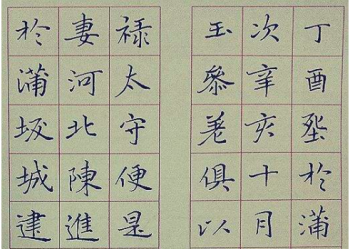 丁酉於蒲
次辛亥十月
玉參差俱以
祿太守便是
妻河北陳進
於蒲坂城建